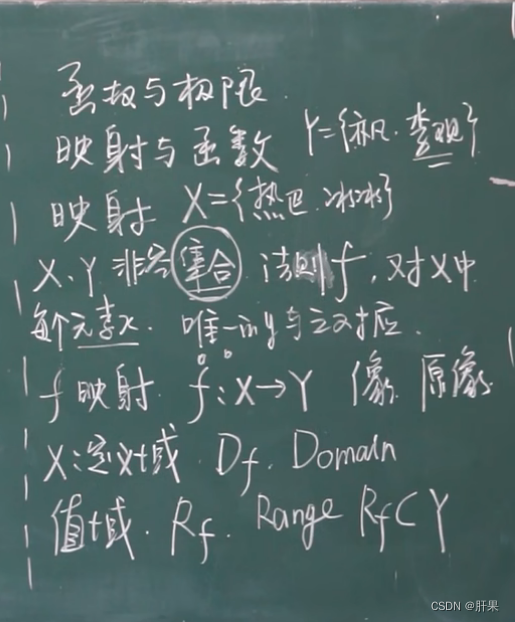 函数与极限
映射与函数 Y={亦凡.李现}
映射 X={热巴.冰冰}
X、Y 非空集合 法则f,对X中
每个元素x.唯一的y与之对应.
f映射. f:X→Y 像.原像.
X:定义域.Df.Domain
值域.Rf.Range Rf⊂Y
CSDN @肝果